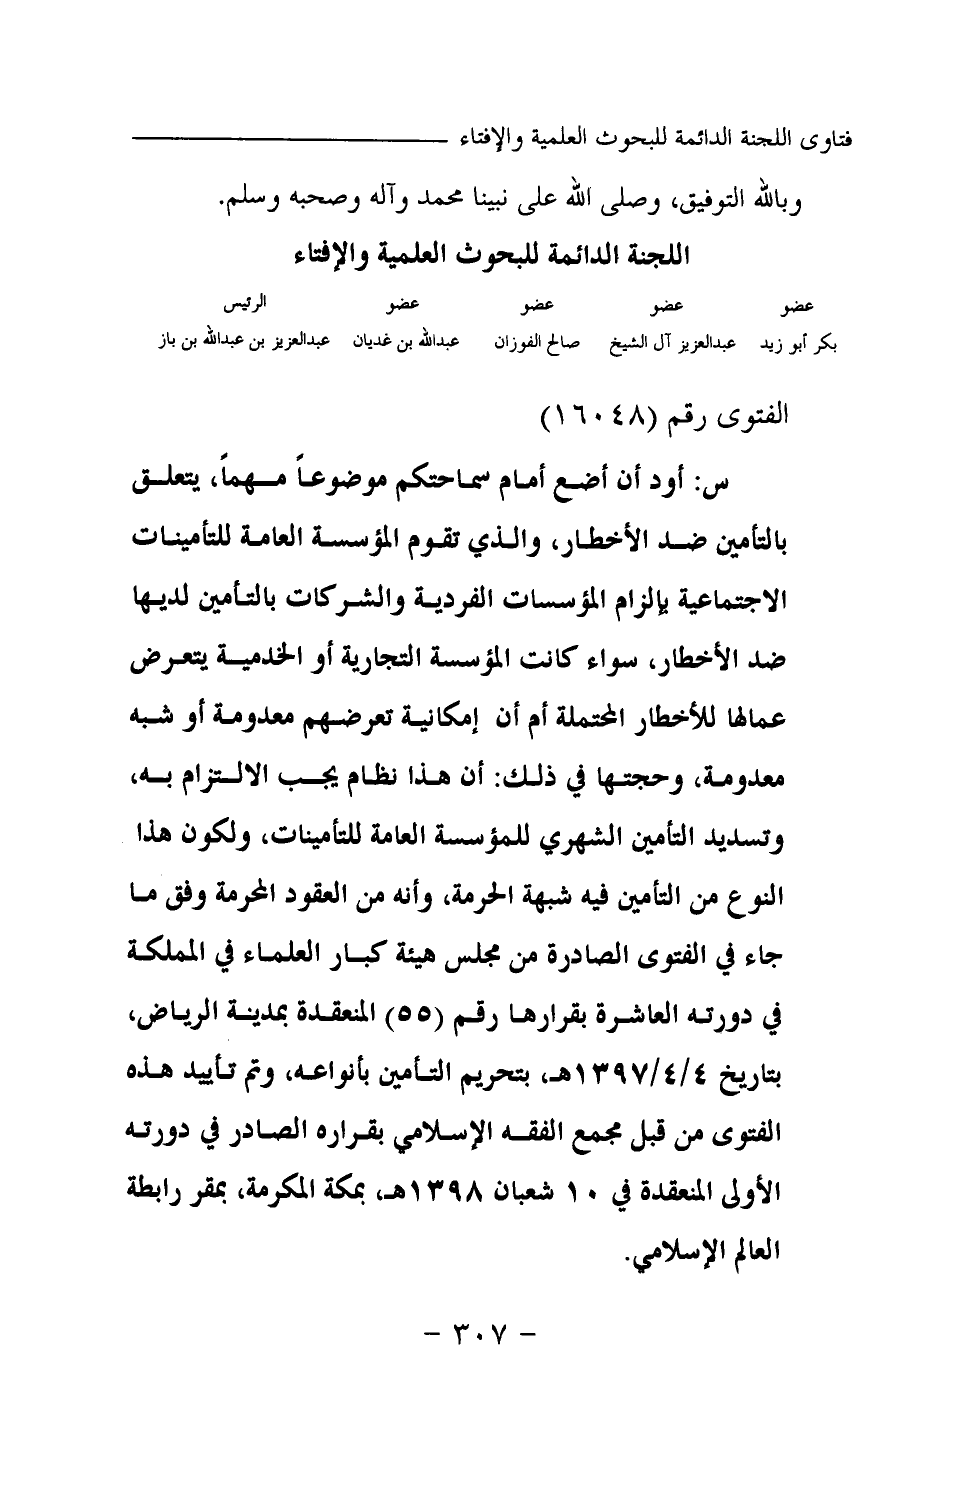 فتاوى اللجنة الدائمة للبحوث العلمية والإفتاء
وبالله التوفيق، وصلى الله على نبينا محمد وآله وصحبه وسلم.
اللجنة الدائمة للبحوث العلمية والإفتاء
عضو عضو عضو عضو الرئيس
بكر أبو زيد عبدالعزيز آل الشيخ صالح الفوزان عبدالله بن غديان عبدالعزيز بن عبدالله بن باز
الفتوى رقم (١٦٠٤٨)
س: أود أن أضع أمام سماحتكم موضوعاً مهماً، يتعلق
بالتأمين ضد الأخطار، والذي تقوم المؤسسة العامة للتأمينات
الاجتماعية بإلزام المؤسسات الفردية والشركات بالتأمين لديها
ضد الأخطار، سواء كانت المؤسسة التجارية أو الخدمية يتعرض
عمالها للأخطار المحتملة أم أن إمكانية تعرضهم معدومة أو شبه
معدومة، وحجتها في ذلك: أن هذا نظام يجب الالتزام به،
وتسديد التأمين الشهري للمؤسسة العامة للتأمينات، ولكون هذا
النوع من التأمين فيه شبهة الحرمة، وأنه من العقود المحرمة وفق ما
جاء في الفتوى الصادرة من مجلس هيئة كبار العلماء في المملكة
في دورته العاشرة بقرارها رقم (٥٥) المنعقدة بمدينة الرياض،
بتاريخ ١٣٩٧/٤/٤هـ، بتحريم التأمين بأنواعه، وتم تأييد هذه
الفتوى من قبل مجمع الفقه الإسلامي بقراره الصادر في دورته
الأولى المنعقدة في ١٠ شعبان ١٣٩٨هـ، بمكة المكرمة، بمقر رابطة
العالم الإسلامي.
- ٣٠٧ -